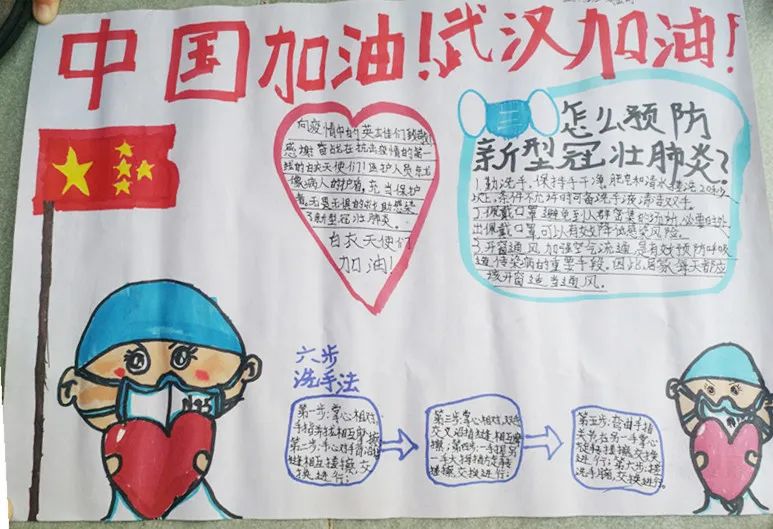 中国加油!武汉加油!
向疫情中的英雄们致敬!
感谢奋战在抗击疫情的第一
线的白衣天使们!医护人员
像病人的护盾,充当保护
者,无畏无惧的
了新型冠壮肺炎。
白衣天使们
加油!
怎么预防
新型冠壮肺炎?
1.勤洗手,保持手干净,肥皂和清水搓洗20秒
以上,条件不允许时可备洗手液清洁双手。
2.佩戴口罩避免到人群密集的地方,必要的外
出佩戴口罩可以有效降低感染风险。
3.开窗通风,加强空气流通,是有效预防呼吸
道传染病的重要手段,因此居家每天都应
该开窗适当通风。
六步
洗手法
第一步:掌心相对,
手指并拢相互摩擦
第二步:手心对手背沿指
缝相互搓擦,交
换进行;
第三步:掌心相对,双手
交叉沿指缝相互摩
擦;第四步:一手握另
一手大拇指旋转
搓擦,交换进行;
第五步:弯曲手指
关节在另一手掌心
旋转搓擦,交换
进行;第六步:搓
洗手腕,交换进行。
N95